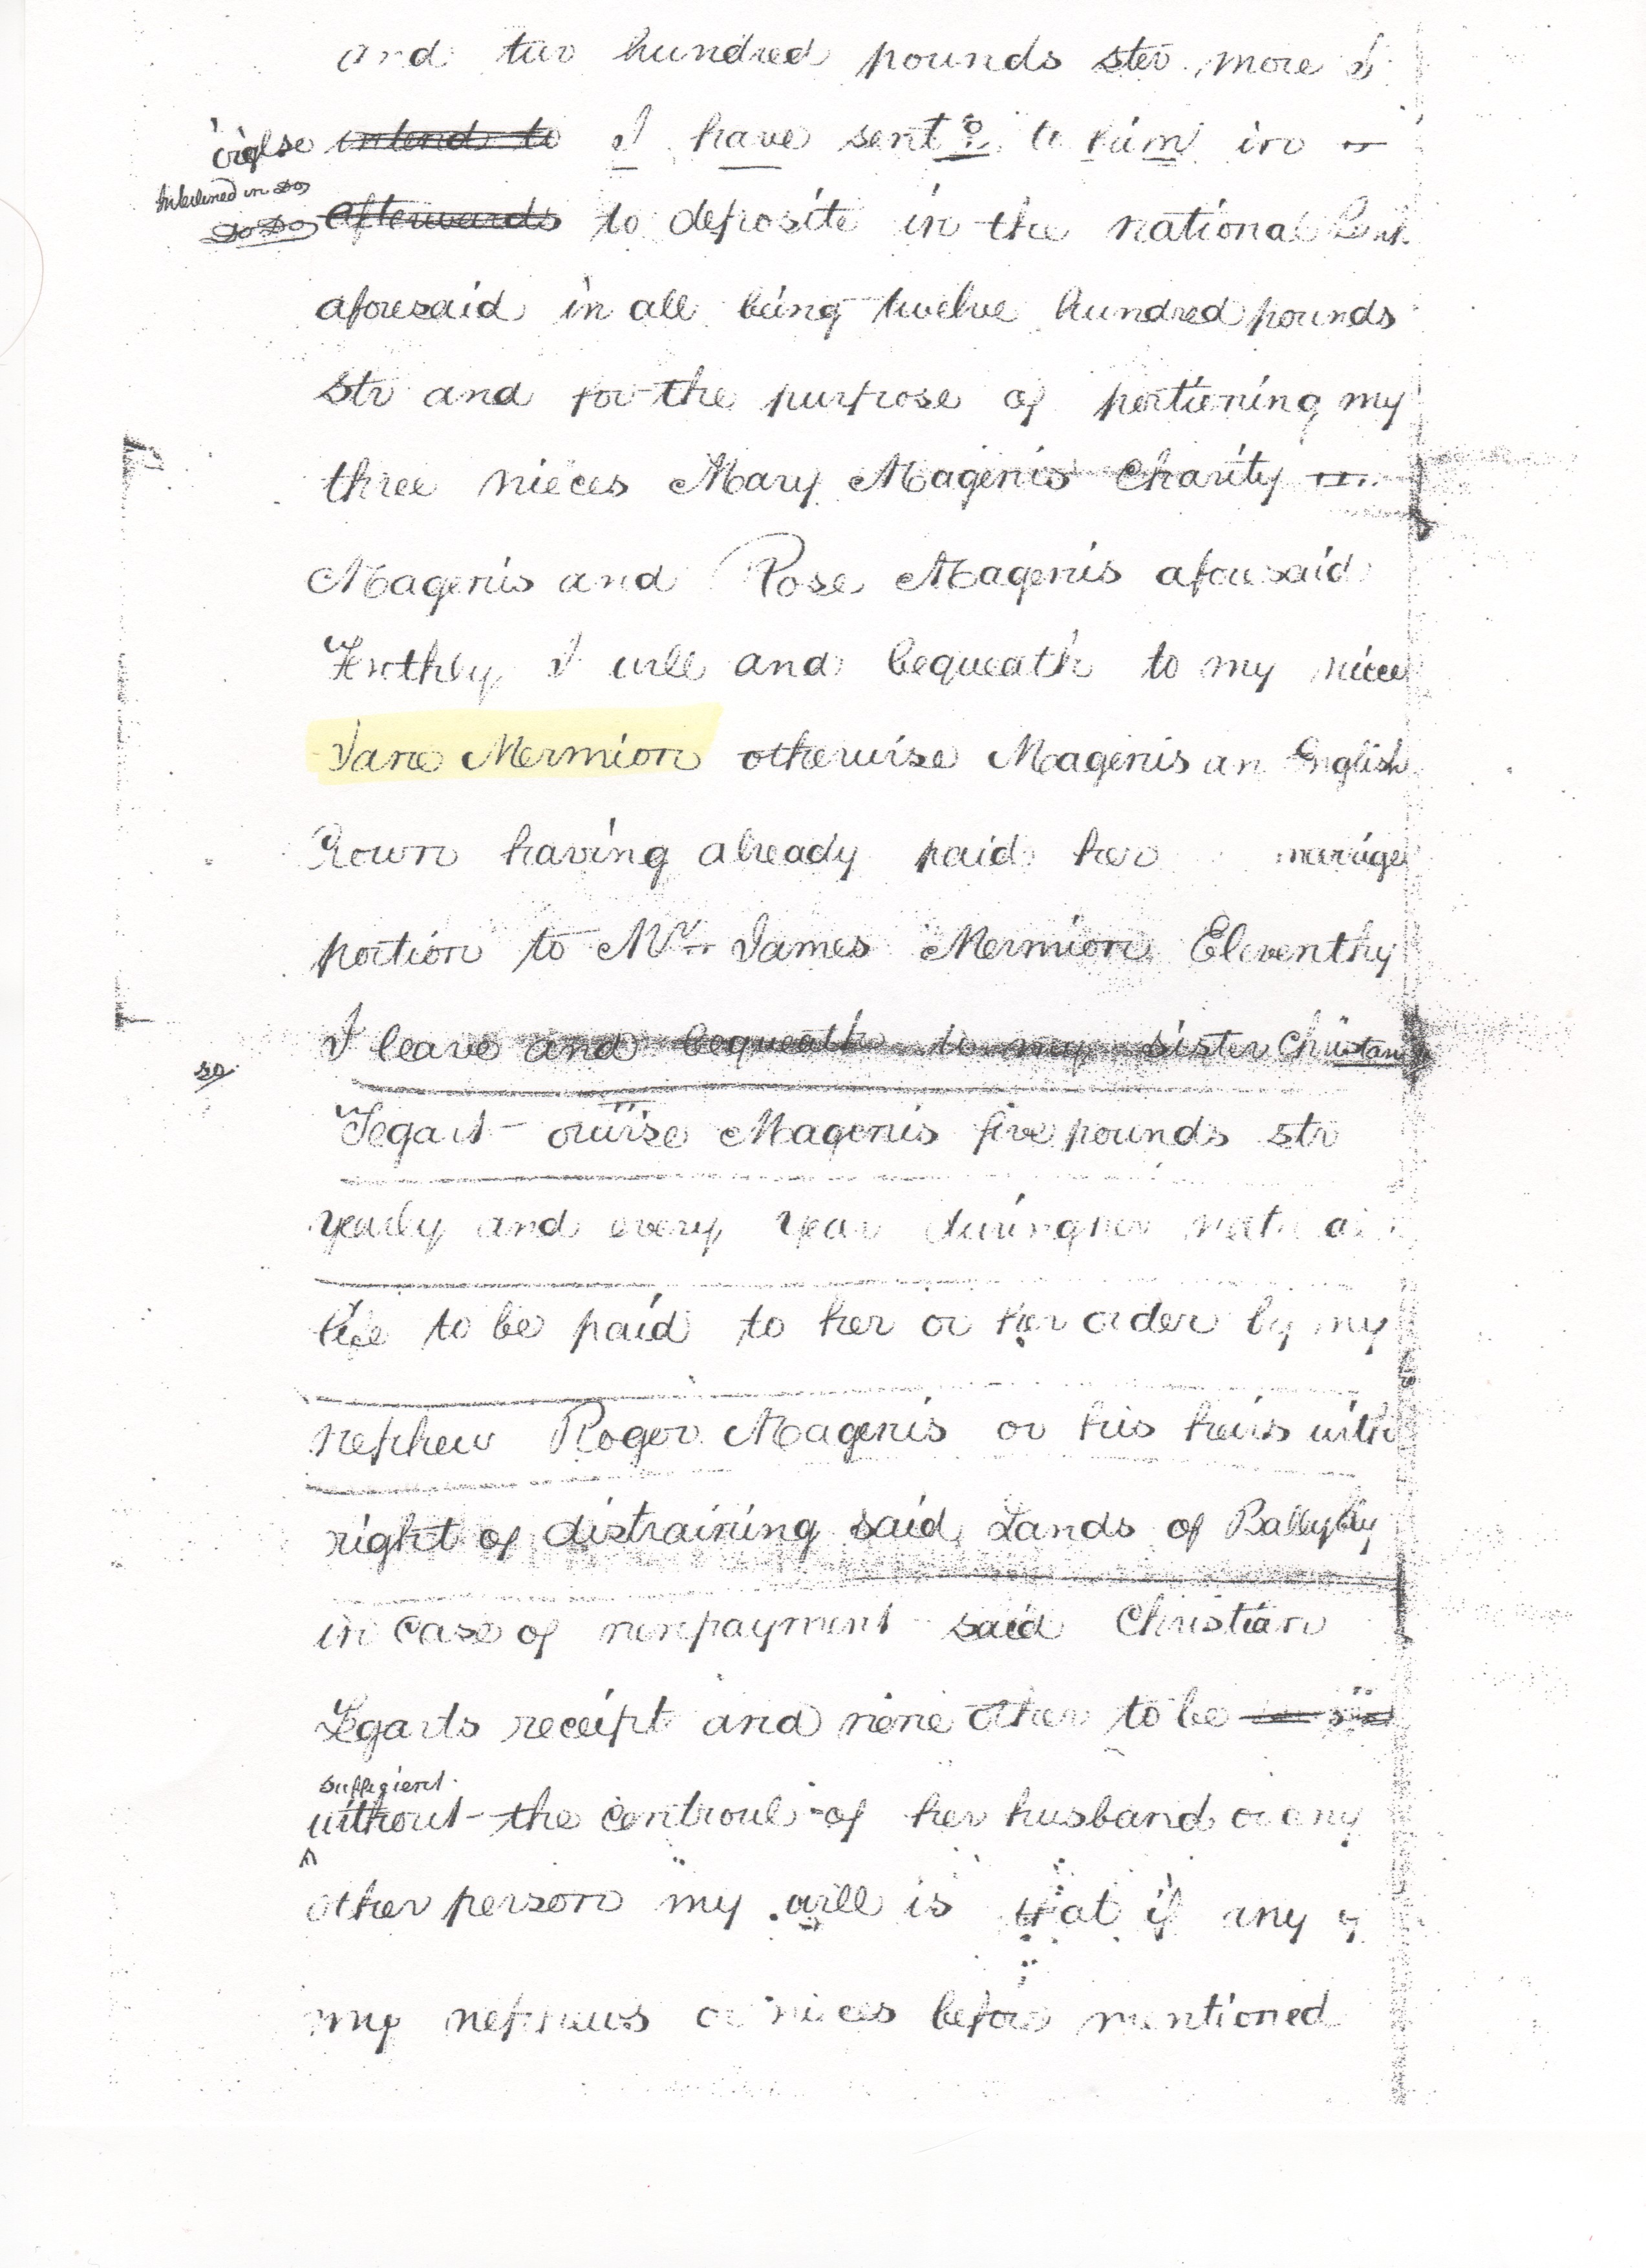 and two hundred pounds ster more I
intends to I have sent to him in
Interlined in Do
Do Do afterwards to deposite in the national Bank
aforesaid in all being twelve hundred pounds
Str and for the purpose of portioning my
three nieces Mary Magenis Charity
Magenis and Rose Magenis aforesaid
I will and bequeath to my niece
Jane Mermion otherwise Magenis an English
Crown having already paid her mariage
portion to Mr James Mermion Eleventhy
I leave and bequeath to my sister Christian
Tegart - Magenis five pounds str
yearly and every year during her natural
life to be paid to her or her order by my
nephew Roger Magenis or his heirs with
right of distraining said Lands of
in case of nonpayment said Christian
Tegarts receipt and none other to be
sufficient
without the controul of her husband or any
other person my will is that if any of
my nephews or nieces before mentioned